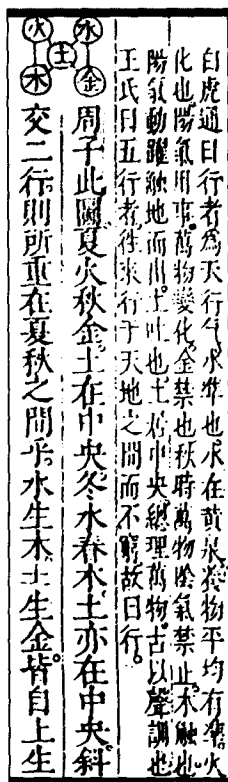 白虎通曰行者為天行气水準也水在黃泉養物平均有準火
化也陽氣用事萬物變化金禁也秋時萬物陰氣禁止木觸也
陽氣動躍觸地而出土吐也土中央總理萬物古以聲訓也
王氏曰五行者往來行于天地之間而不窮故曰行。
水
火
土
金
木
周子此圖夏火秋金土在中央冬水春木土亦在中央。斜
交二行則所重在夏秋之間乎水生木土生金皆自上生